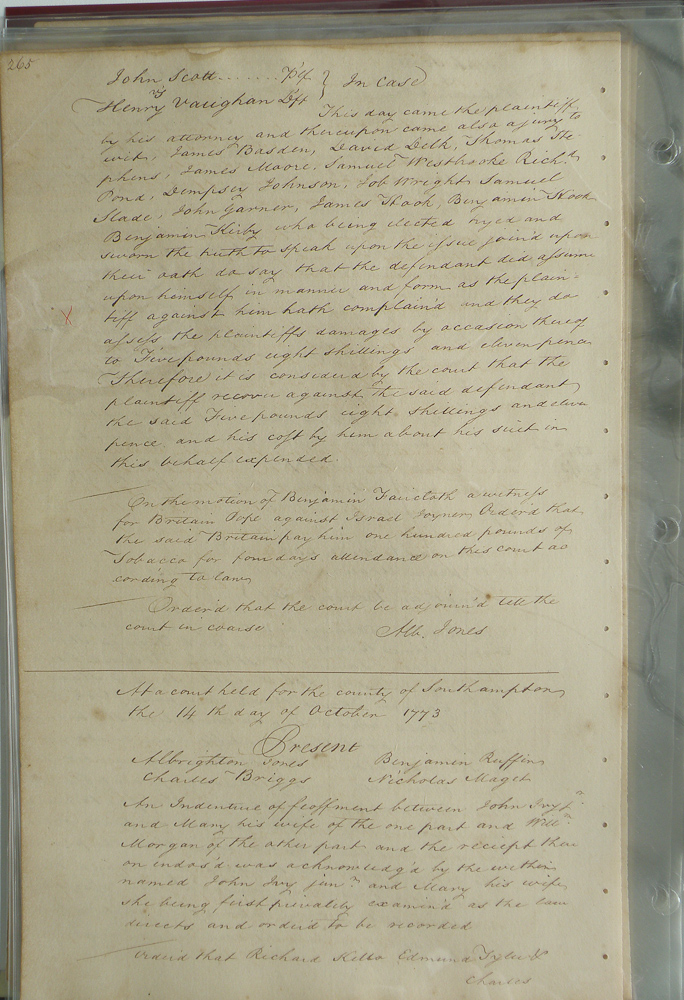 265
John Scott ....... Plf } In Case
vs
Henry Vaughan Dft
This day came the plaintiff
by his attorney and thereupon came also a jury to
wit, James Basden, David Delk, Thomas Ste-
phens, James Moore, Samuel Westbrooke Richd.
Pond, Dempsey Johnson, Job Wright, Samuel
Slade, John Garner, James Hook, Benjamin Hook
Benjamin Kirby who being elected tryed and
sworn the truth to speak upon the issue join'd upon
their oath do say that the defendant did assume
upon himself in manner and form as the plain-
tiff against him hath complain'd and they do
x
assess the plaintiffs damages by occasion thereof
to Five pounds eight shillings and eleven pence
Therefore it is considerd by the court that the
plaintiff recover against the said defendant
the said Five pounds eight shillings and eleven
pence and his cost by him about his suit in
this behalf expended.
On the motion of Benjamin Faircloth a witness
for Britain Pope against Israel Joyner, Orderd that
the said Britain pay him one hundred pounds of
Tobacco for four days attendance on this court ac
cording to law,
Order'd that the court be adjourn'd till the
court in course
Alb. Jones
At a court held for the county of Southampton,
the 14th day of October 1773
Present
Albrighton Jones Benjamin Ruffin,
Charles Briggs Nicholas Maget
An Indenture of feoffment between John Ivy jr.
and Mary his wife of the one part and Willm.
Morgan of the other part and the reciept there
on endos'd was acknowledg'd by the within
named John Ivy junr. and Mary his wife
she being first privately examin'd as the law
directs and order'd to be recorded
Orderd that Richard Kello Edmund Tyler &
Charles